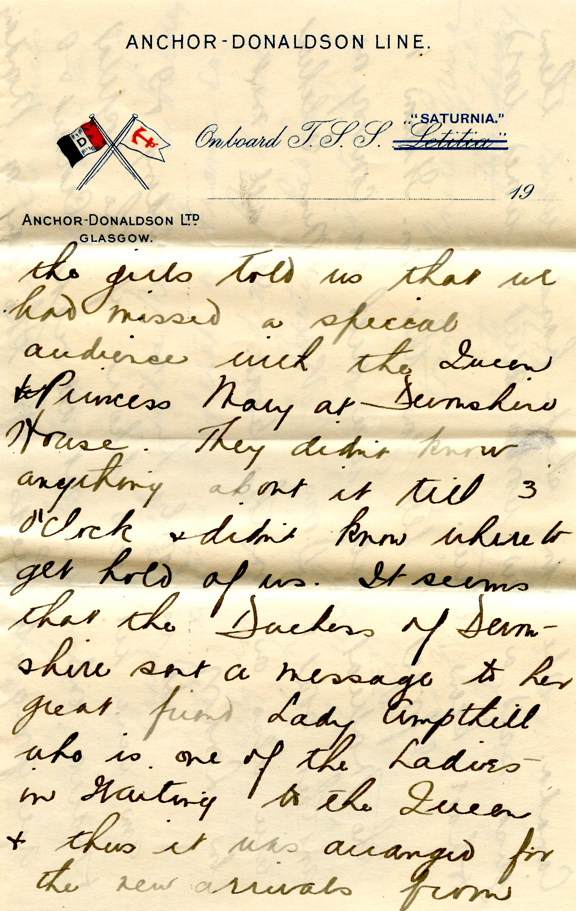 ANCHOR-DONALDSON LINE.
"SATURNIA."
Onboard T.S.S. "Letitia"
19
D
ANCHOR-DONALDSON LTD
GLASGOW.
the girls told us that we
had missed a special
audience with the Queen
& Princess Mary at Devonshire
House. They didn't know
anything about it till 3
o'clock & didn't know where to
get hold of us. It seems
that the Duchess of Devon-
shire sent a message to her
great friend Lady Ampthill
who is one of the Ladies
in Waiting to the Queen
& thus it was arranged for
the new arrivals from